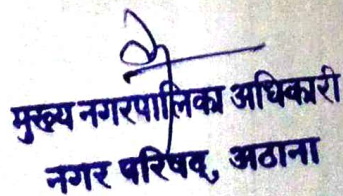 मुख्य नगरपालिका अधिकारी
नगर परिषद्, अठाना